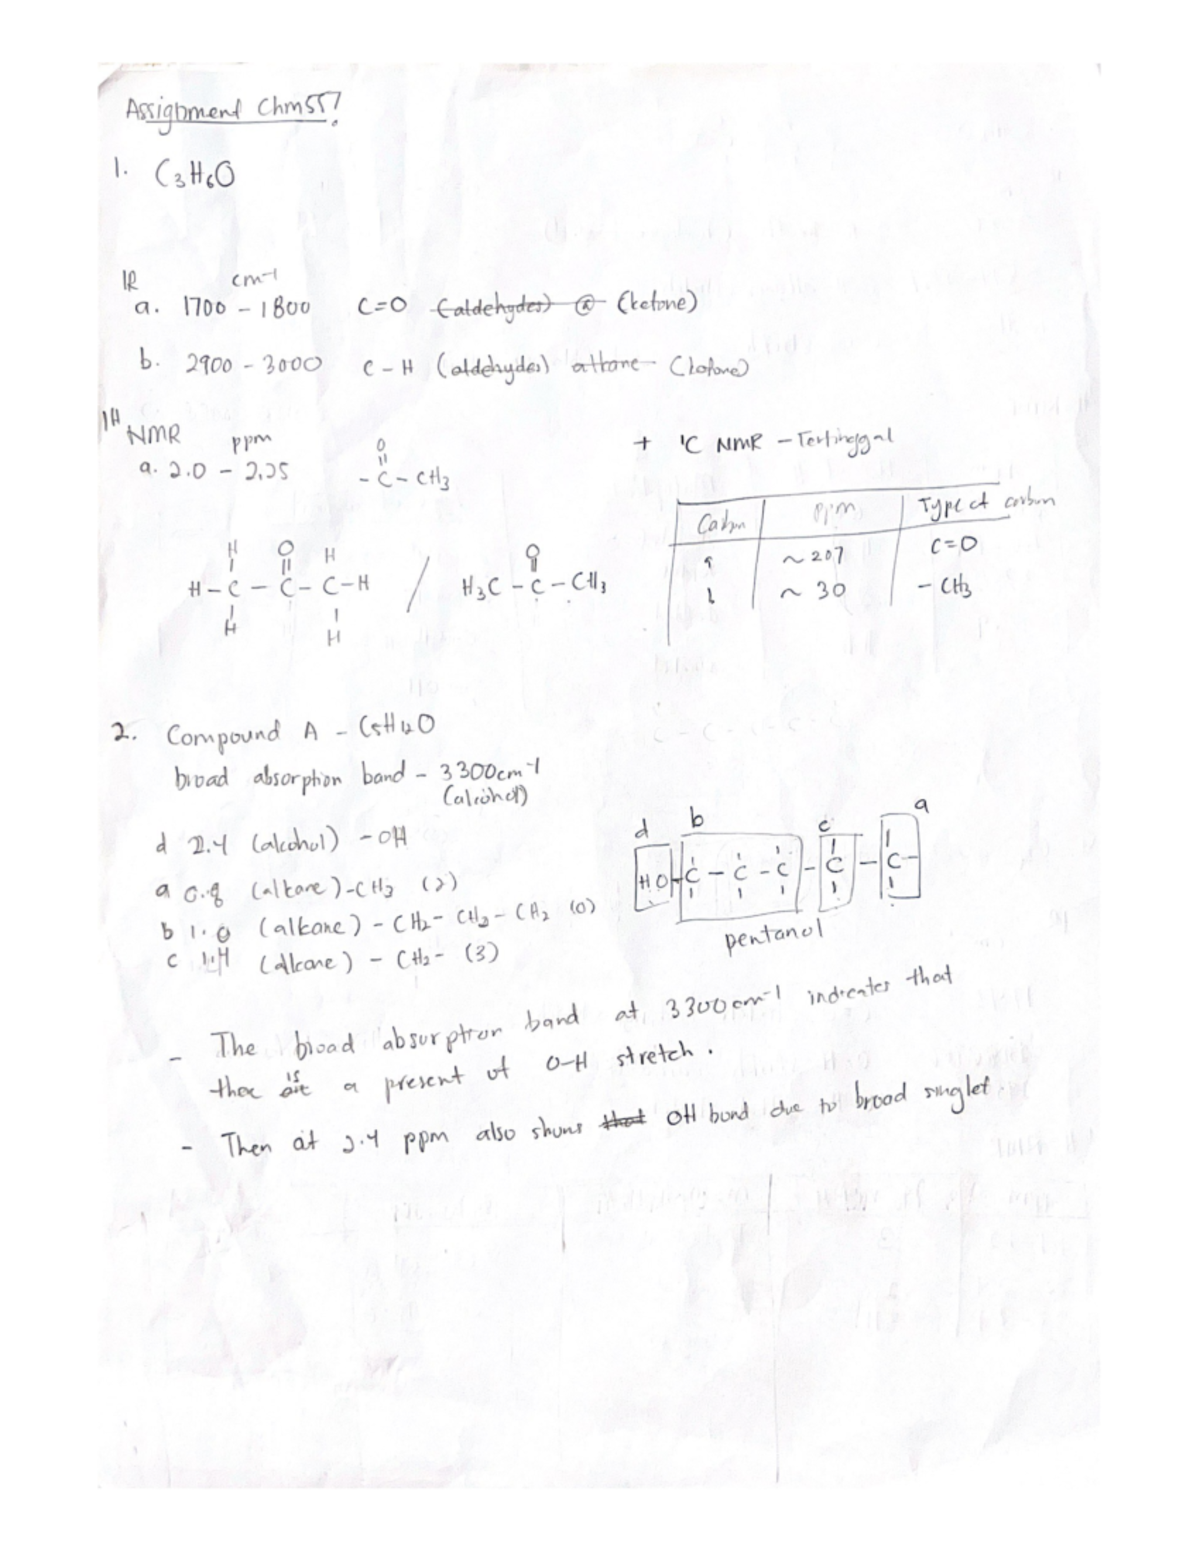 Assignment Chm557
1. C3H6O
IR cm-1
a. 1700 - 1800 C=O (aldehydes) @ (ketone)
b. 2900 - 3000 C - H (aldehydes) alkane (ketone)
1H NMR ppm
a. 2.0 - 2.25
O
- C - CH3
+ 'C NMR - Tertinggal
Carbon ppm Type of carbon
a ~ 207 C=O
b ~ 30 - CH3
H O H
H - C - C - C - H / H3C - C - CH3
O
H H
2. Compound A - C5H12O
broad absorption band - 3300cm-1
(alcohol)
d 2.4 (alcohol) - OH
a 0.8 (alkane) - CH3 (2)
b 1.0 (alkane) - CH2 - CH2 - CH2 (0)
c 1.4 (alkane) - CH2 - (3)
d b c a
HO - C - C - C - C - C -
pentanol
- The broad absorption band at 3300cm-1 indicates that
ther is a present of O-H stretch.
- Then at 2.4 ppm also shows that OH bond due to broad singlet.